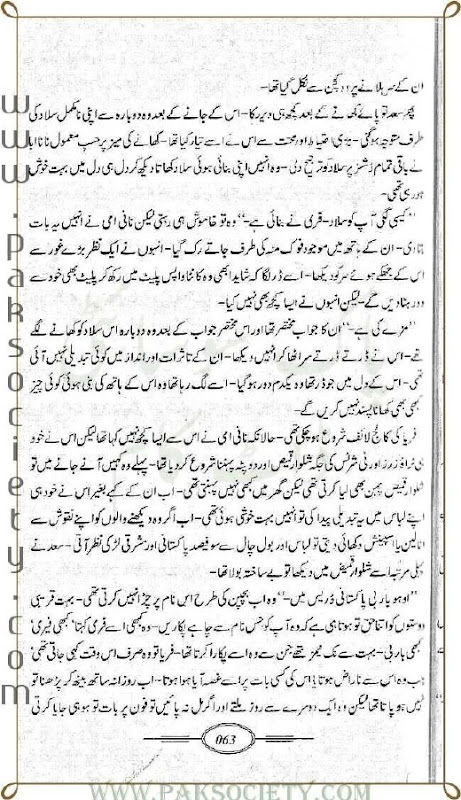 WWW.PAKSOCIETY.COM
www.paksociety.com
ان کے سر ہلانے پر وہ کچن سے نکل گیا تھا۔
پھر سعد تو پانی کے بعد کچھ ہی دیر رکا۔ اس کے جانے کے بعد وہ دوبارہ سے اپنی نامکمل سلاد کی
طرف متوجہ ہو گئی۔ بڑی احتیاط اور محنت سے اس نے اسے تیار کیا تھا۔ کھانے کی میز پر حسب معمول نانا ابا
نے باقی تمام ڈشز پر سلاد کو ترجیح دی۔ وہ انہیں اپنی بنائی ہوئی سلاد کھاتا دیکھ کر دل ہی دل میں بہت خوش
ہو رہی تھی۔
"کیسی لگی آپ کو سلاد۔ فری نے بنائی ہے۔" وہ تو خاموش ہی رہتی لیکن نانی امی نے انہیں یہ بات
بتا دی۔ ان کے ہاتھ میں موجود فوک منہ کی طرف جاتے رک گیا۔ انہوں نے ایک نظر بڑے غور سے
اس کے جھکے ہوئے سر کو دیکھا۔ اسے ڈر لگا کہ شاید ابھی وہ کانٹا واپس پلیٹ میں رکھ کر پلیٹ بھی خود سے
دور ہٹا دیں گے۔ لیکن انہوں نے ایسا کچھ بھی نہیں کیا۔
"مزے کی ہے۔" ان کا جواب مختصر تھا اور اس مختصر جواب کے بعد وہ دوبارہ اس سلاد کو کھانے لگے
تھے۔ اس نے ڈرتے ڈرتے سر اٹھا کر انہیں دیکھا۔ ان کے تاثرات اور انداز میں کوئی تبدیلی نہیں آئی
تھی۔ اس کے دل میں جو ڈر تھا وہ یکدم دور ہو گیا۔ اسے لگ رہا تھا وہ اس کے ہاتھ کی بنی ہوئی کوئی چیز
کبھی بھی کھانا پسند نہیں کریں گے۔
فریا کی کالج لائف شروع ہو چکی تھی۔ حالانکہ نانی امی نے اس سے ایسا کچھ نہیں کہا تھا لیکن اس نے خود
ہی ٹراؤزرز اور ٹی شرٹس کی جگہ شلوار قمیض اور دوپٹہ پہننا شروع کر دیا تھا۔ پہلے وہ کہیں آنے جانے میں تو
شلوار قمیض پہن بھی لیا کرتی تھی لیکن گھر میں کبھی نہیں پہنتی تھی۔ اب ان کے کہے بغیر اس نے خود ہی
اپنے لباس میں یہ تبدیلی پیدا کی تو انہیں بہت خوشی ہوئی تھی۔ اب اگر وہ دیکھنے والوں کو اپنے نقوش سے
اٹالین یا اسپینش دکھائی دیتی تو لباس اور بول چال سے سو فیصد پاکستانی اور مشرقی لڑکی نظر آتی۔ سعد نے
پہلی مرتبہ اسے شلوار قمیض میں دیکھا تو بے ساختہ بولا تھا۔
"اوہو باربی پاکستانی ڈریس میں۔" وہ اب بچپن کی طرح اس نام پر چڑا نہیں کرتی تھی۔ بہت قریبی
دوستوں کو اتنا حق تو ہوتا ہی ہے کہ وہ آپ کو جس نام سے چاہے پکاریں۔ وہ کبھی اسے فری کہتا، کبھی فیری،
کبھی باربی۔ بہت سے نک نیمز تھے جن سے وہ اسے پکارا کرتا تھا۔ فریا تو وہ صرف اس وقت کہی جاتی تھی،
جب وہ اس سے ناراض ہوتا یا اس کی کسی بات پر اسے غصہ آیا ہوا ہوتا۔ اب روزانہ ساتھ بیٹھ کر پڑھنا تو
نہیں ہو پاتا تھا لیکن وہ ایک دوسرے سے روز ملتے اور اگر مل نہ پائیں تو فون پر بات تو ہو ہی جایا کرتی
063
WWW.PAKSOCIETY.COM